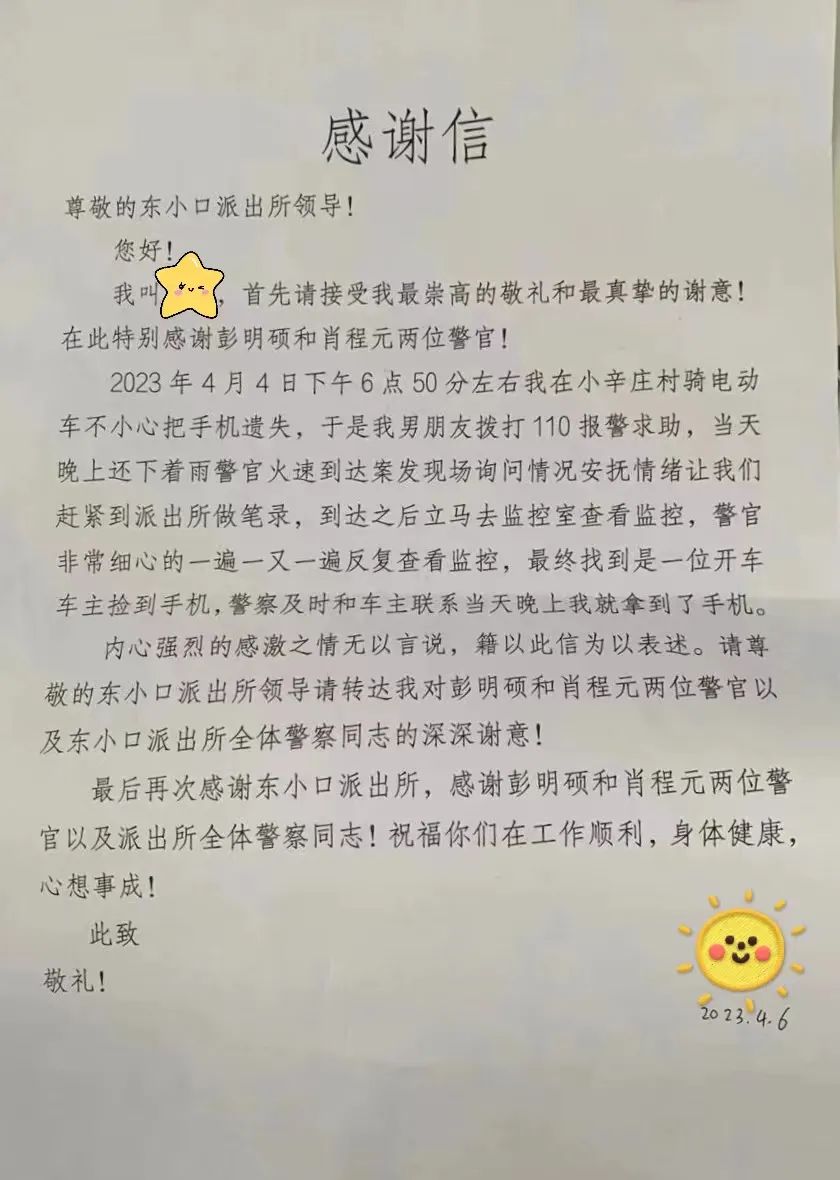 感谢信
尊敬的东小口派出所领导！
您好！
我叫，首先请接受我最崇高的敬礼和最真挚的谢意！
在此特别感谢彭明硕和肖程元两位警官！
2023年4月4日下午6点50分左右我在小辛庄村骑电动
车不小心把手机遗失，于是我男朋友拨打110报警求助，当天
晚上还下着雨警官火速到达案发现场询问情况安抚情绪让我们
赶紧到派出所做笔录，到达之后立马去监控室查看监控，警官
非常细心的一遍一又一遍反复查看监控，最终找到是一位开车
车主捡到手机，警察及时和车主联系当天晚上我就拿到了手机。
内心强烈的感激之情无以言说，籍以此信为以表述。请尊
敬的东小口派出所领导请转达我对彭明硕和肖程元两位警官以
及东小口派出所全体警察同志的深深谢意！
最后再次感谢东小口派出所，感谢彭明硕和肖程元两位警
官以及派出所全体警察同志！祝福你们在工作顺利，身体健康，
心想事成！
此致
敬礼！
2023.4.6